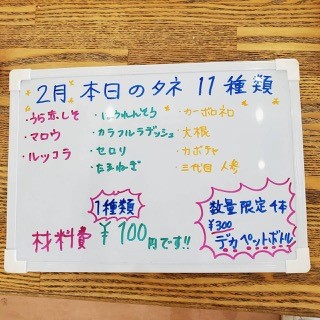 2月 本日のタネ 11種類
・うら赤しそ
・マロウ
・ルッコラ
・ほうれんそう
・カラフルラディッシュ
・セロリ
・たまねぎ
・カーボロネロ
・大根
・カボチャ
・三代目 人参
1種類
材料費 ¥100円です!!
数量限定1体
¥300
デカペットボトル